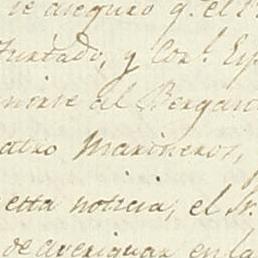 se aseguro q.e el
Furtado, y Cor.l Esp
norte al Bergant
atro Marineros,
esta noticia, el Sr.
de averiguar en la